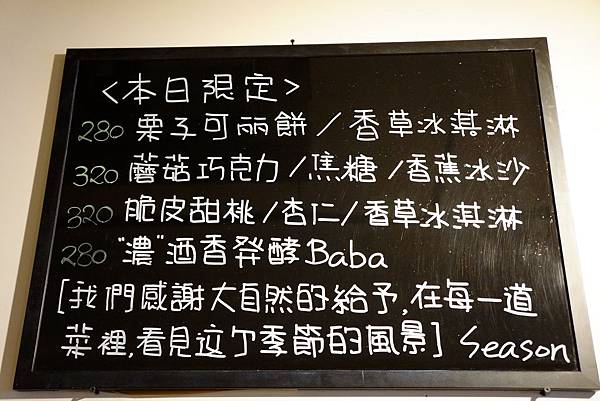 <本日限定>
280 栗子可丽餅/香草冰淇淋
320 蘑菇巧克力/焦糖/香蕉冰沙
320 脆皮甜桃/杏仁/香草冰淇淋
280 "濃"酒香発酵Baba
[我們感謝大自然的給予,在每一道
菜裡,看見这ㄅ季節的風景] Season